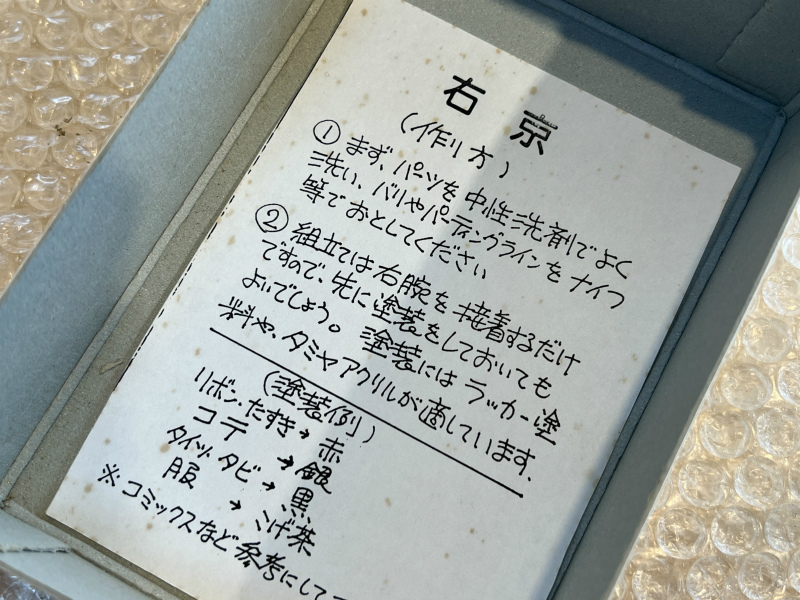 右京
(作り方)
① まず、パーツを中性洗剤でよく
洗い、バリやパーティングラインをナイフ
等でおとしてください
② 組立ては右腕を接着するだけ
ですので、先に塗装をしておいても
よいでしょう。塗装にはラッカー塗
料や、タミヤアクリルが適しています.
(塗装例)
リボン.たすき→赤
コテ→銀
タイツ.タビ→黒
服→こげ茶
※コミックスなど参考にして